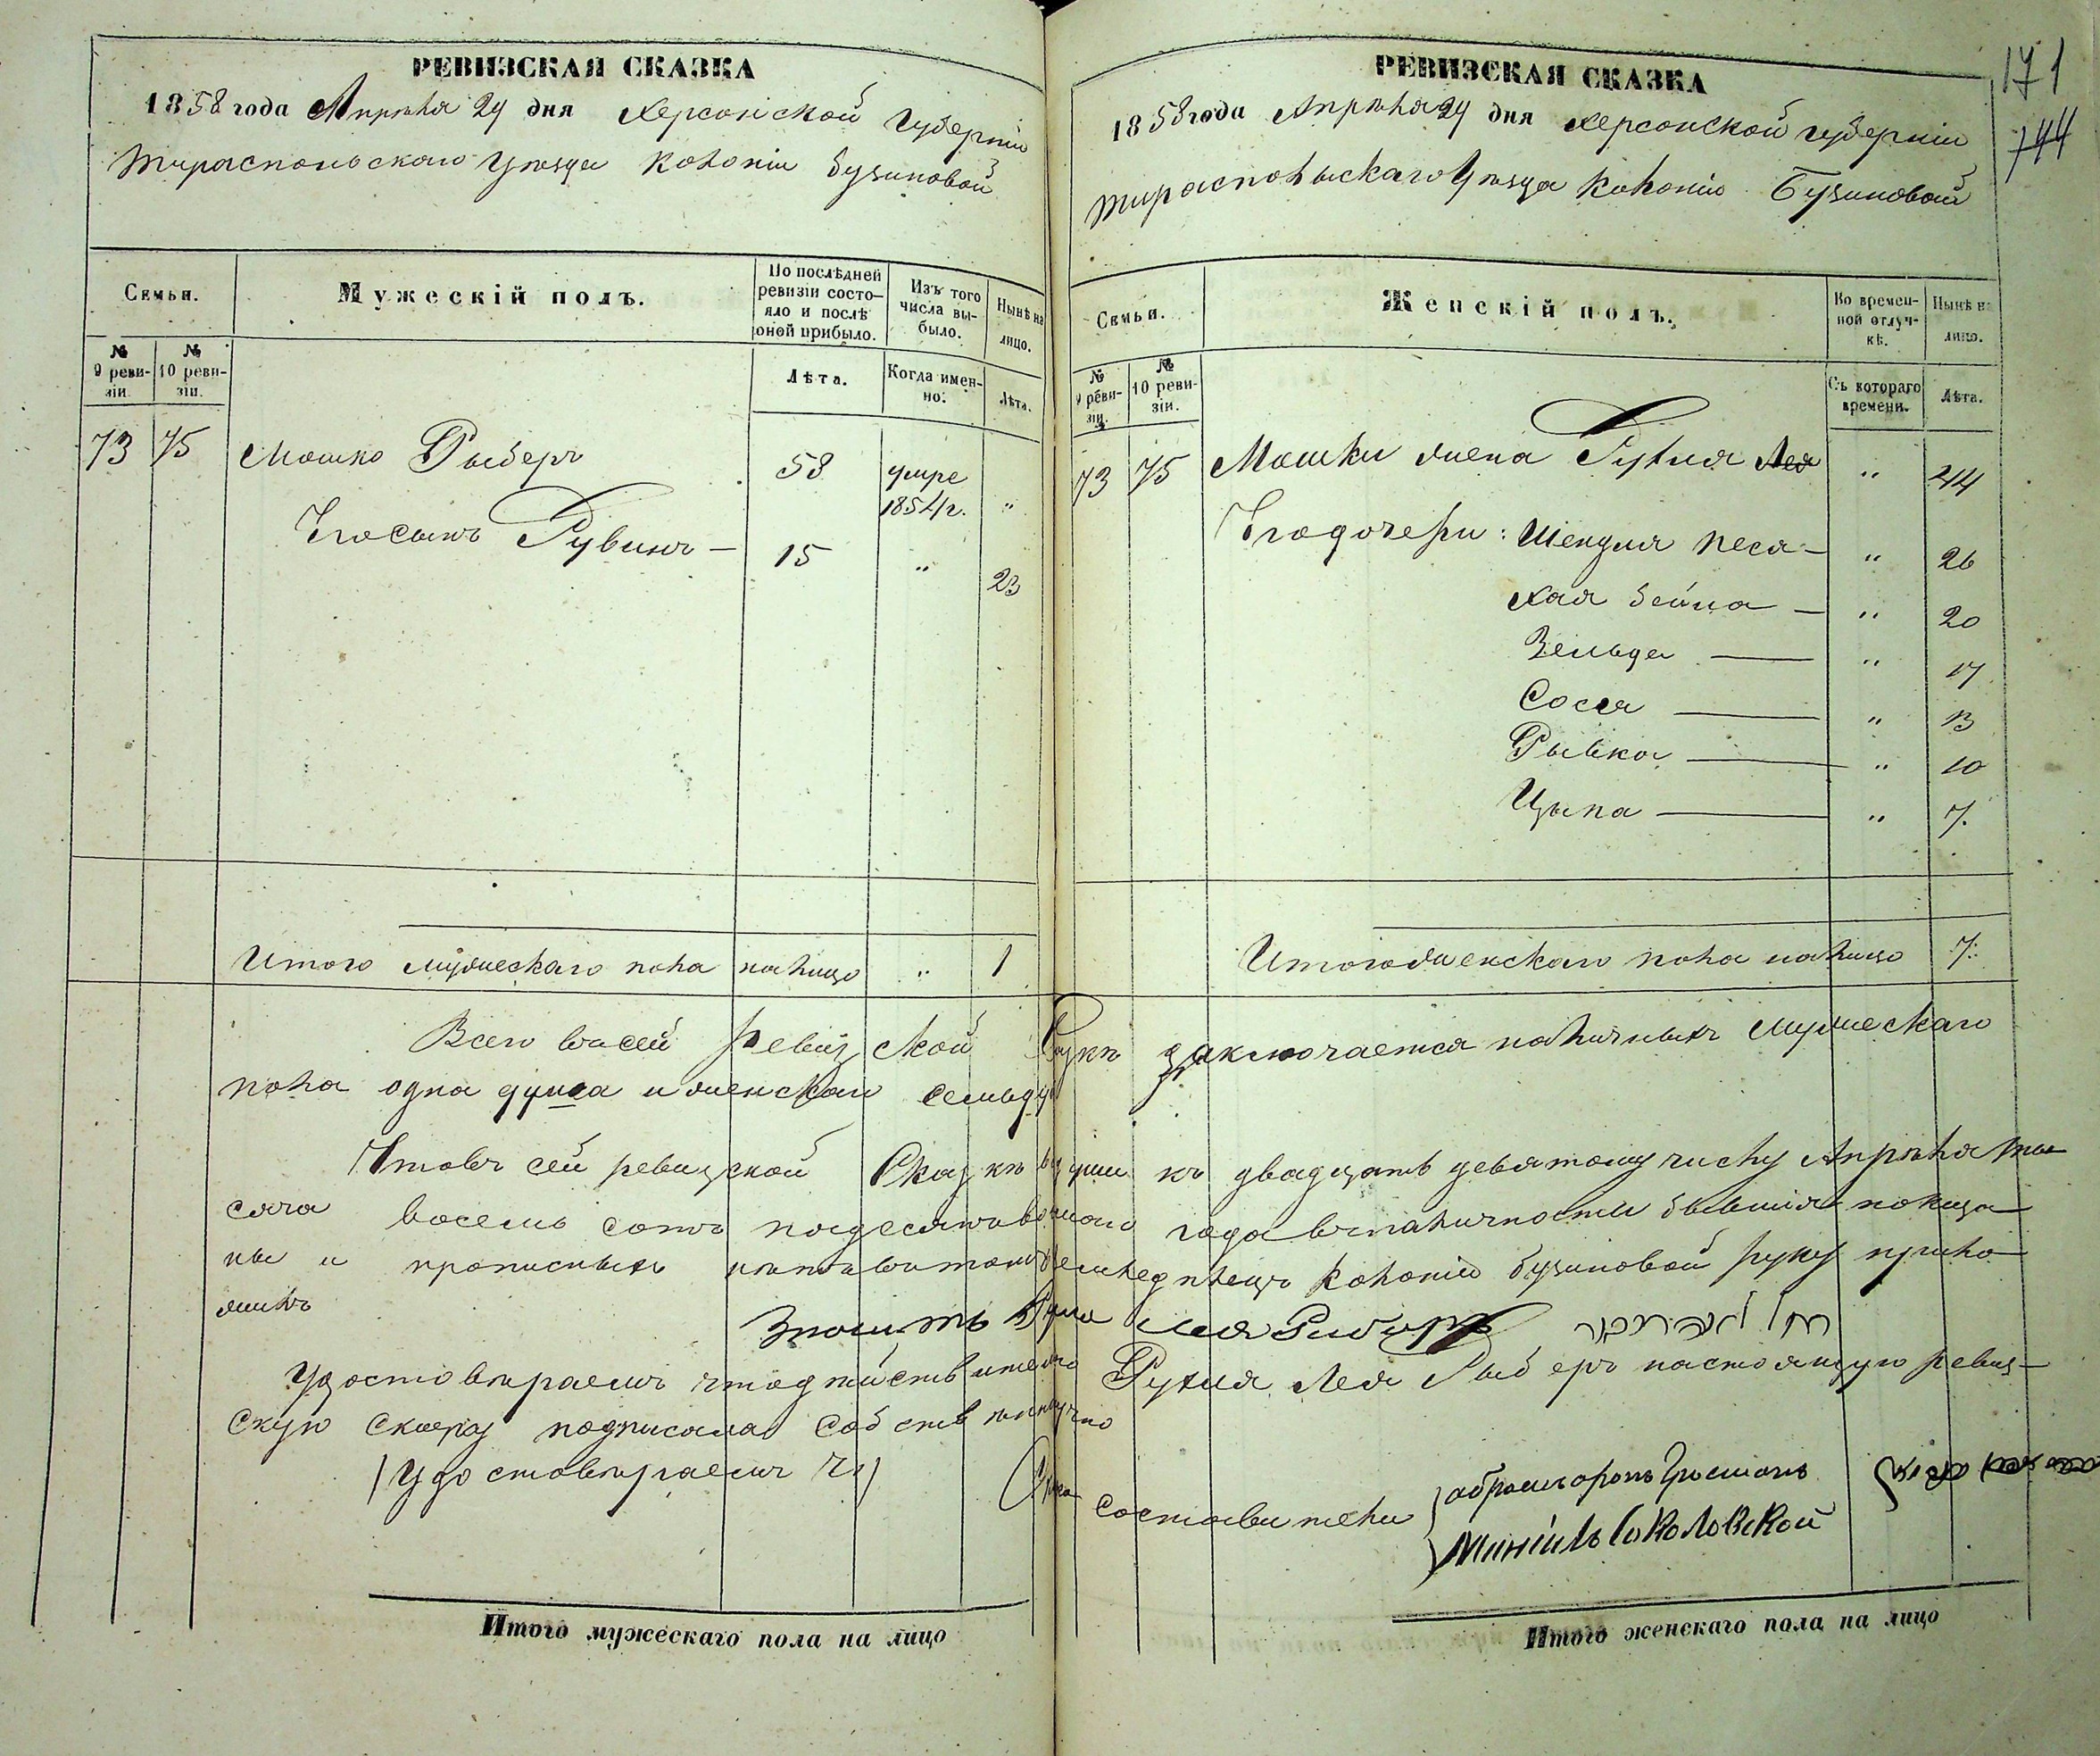 РЕВИЗСКАЯ СКАЗКА
1858 года Апрѣля 29 дня Херсонской Губерніи
Тираспольскаго Уѣзда Колоніи Бузиновой
Семьи.
Мужескій полъ.
По послѣдней ревизіи состо-
яло и послѣ оной прибыло.
Изъ того числа вы-
было.
Нынѣ на лицо.
№ 9 реви-
зіи.
№ 10 реви-
зіи.
Лѣта.
Когда имен-
но.
Лѣта.
73 75 Мошко Рыберъ 58 умре 1854 г. "
Его сынъ Рувинъ — 15 " 23
Итого мужескаго пола налицо " 1
РЕВИЗСКАЯ СКАЗКА
1858 года Апрѣля 29 дня Херсонской губерніи
Тираспольскаго Уѣзда Колоніи Бузиновой
171
744
Семьи.
Женскій полъ.
Во времен-
ной отлуч-
кѣ.
Нынѣ на лицо.
№ 9 реви-
зіи.
№ 10 реви-
зіи.
Съ котораго времени.
Лѣта.
73 75 Мошки жена Рухля Лея " 44
Его дочери: Шендля Песя — " 26
Хая Бейла — " 20
Зельда — " 17
Сося — " 13
Рывка — " 10
Цыпа — " 7.
Итого женскаго пола налицо 7.
Всего въ сей Ревизской Сказкѣ заключается наличныхъ мужескаго
пола одна душа и женскаго семь душ
Что въ сей ревизской Сказкѣ души къ двадцать девятому числу Апрѣля ты
сяча восемь сотъ пядесятъ восмаго года въ наличности бывшія показа
ны и прописныхъ нѣтъ въ томъ Земледѣлецъ Колоніи Бузиновой руку прило
жилъ
Лея Рыберъ
Удостовѣраемъ что дѣйствительно Рухля Лея Рыберъ настоящую ревиз-
скую Скаску подписала собственоручно
Удостовѣраемъ
Составители
Мингиль Соколовской
Итого мужескаго пола на лицо
Итого женскаго пола на лицо